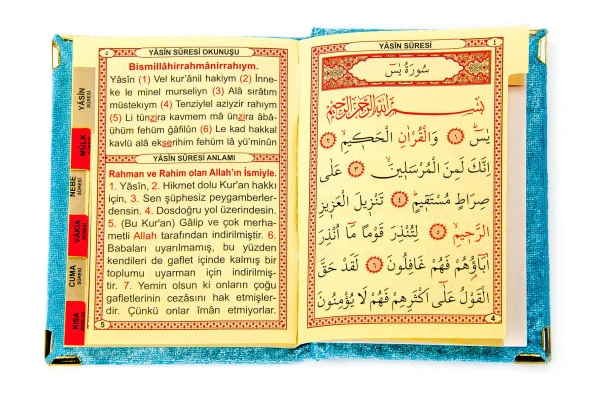 ٥
YÂSİN SÛRESİ OKUNUŞU
Bismillâhirrahmânirrahıym.
Yâsîn (1) Vel kur'ânil hakiym (2) İnne-
ke le minel murseliyn (3) Alâ sırâtım
müstekıym (4) Tenziylel aziyzir rahıym
(5) Li tünzira kavmem mâ ünzira âbâ-
ühüm fehüm ğâfilûn (6) Le kad hakkal
kavlü alâ ekserihim fehüm lâ yü'minûn
YÂSİN SÛRESİ ANLAMI
Rahman ve Rahim olan Allah'ın İsmiyle.
1. Yâsîn, 2. Hikmet dolu Kur'an hakkı
için, 3. Sen şüphesiz peygamberler-
densin. 4. Dosdoğru yol üzerindesin.
5. (Bu Kur'an) Gâlip ve çok merha-
metli Allah tarafından indirilmiştir. 6.
Babaları uyarılmamış, bu yüzden
kendileri de gaflet içinde kalmış bir
toplumu uyarman için indirilmiş-
tir. 7. Yemin olsun ki onların çoğu
gafletlerinin cezasını hak etmişler-
dir. Çünkü onlar îman etmiyorlar.
5
YÂSİN SÛRESİ
MÜLK SÛRESİ
NEBE SÛRESİ
VAKIA SÛRESİ
CUMA SÛRESİ
KISA
YÂSİN SÛRESİ
٤
سُورَةُ يٰسٓ
بِسْمِ اللّٰهِ الرَّحْمٰنِ الرَّحِيمِ
يٰسٓ ﴿١﴾ وَالْقُرْاٰنِ الْحَكِيمِ ﴿٢﴾
اِنَّكَ لَمِنَ الْمُرْسَلِينَ ﴿٣﴾ عَلٰى
صِرَاطٍ مُسْتَقِيمٍ ﴿٤﴾ تَنْزِيلَ الْعَزِيزِ
الرَّحِيمِ ﴿٥﴾ لِتُنْذِرَ قَوْمًا مَٓا اُنْذِرَ
اٰبَٓاؤُ۬هُمْ فَهُمْ غَافِلُونَ ﴿٦﴾ لَقَدْ حَقَّ
الْقَوْلُ عَلٰٓى اَكْثَرِهِمْ فَهُمْ لَا يُؤْمِنُونَ
4